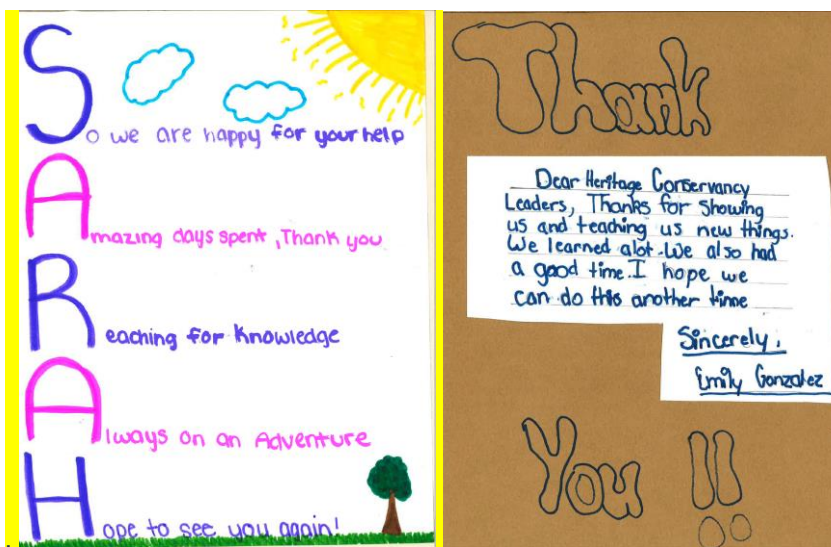 So we are happy for your help
Amazing days spent, Thank you
Reaching for knowledge
Always on an Adventure
Hope to see you again!
Thank
Dear Heritage Conservancy
Leaders, Thanks for showing
us and teaching us new things.
We learned alot. We also had
a good time. I hope we
can do this another time
Sincerely,
Emily Gonzalez
You !!